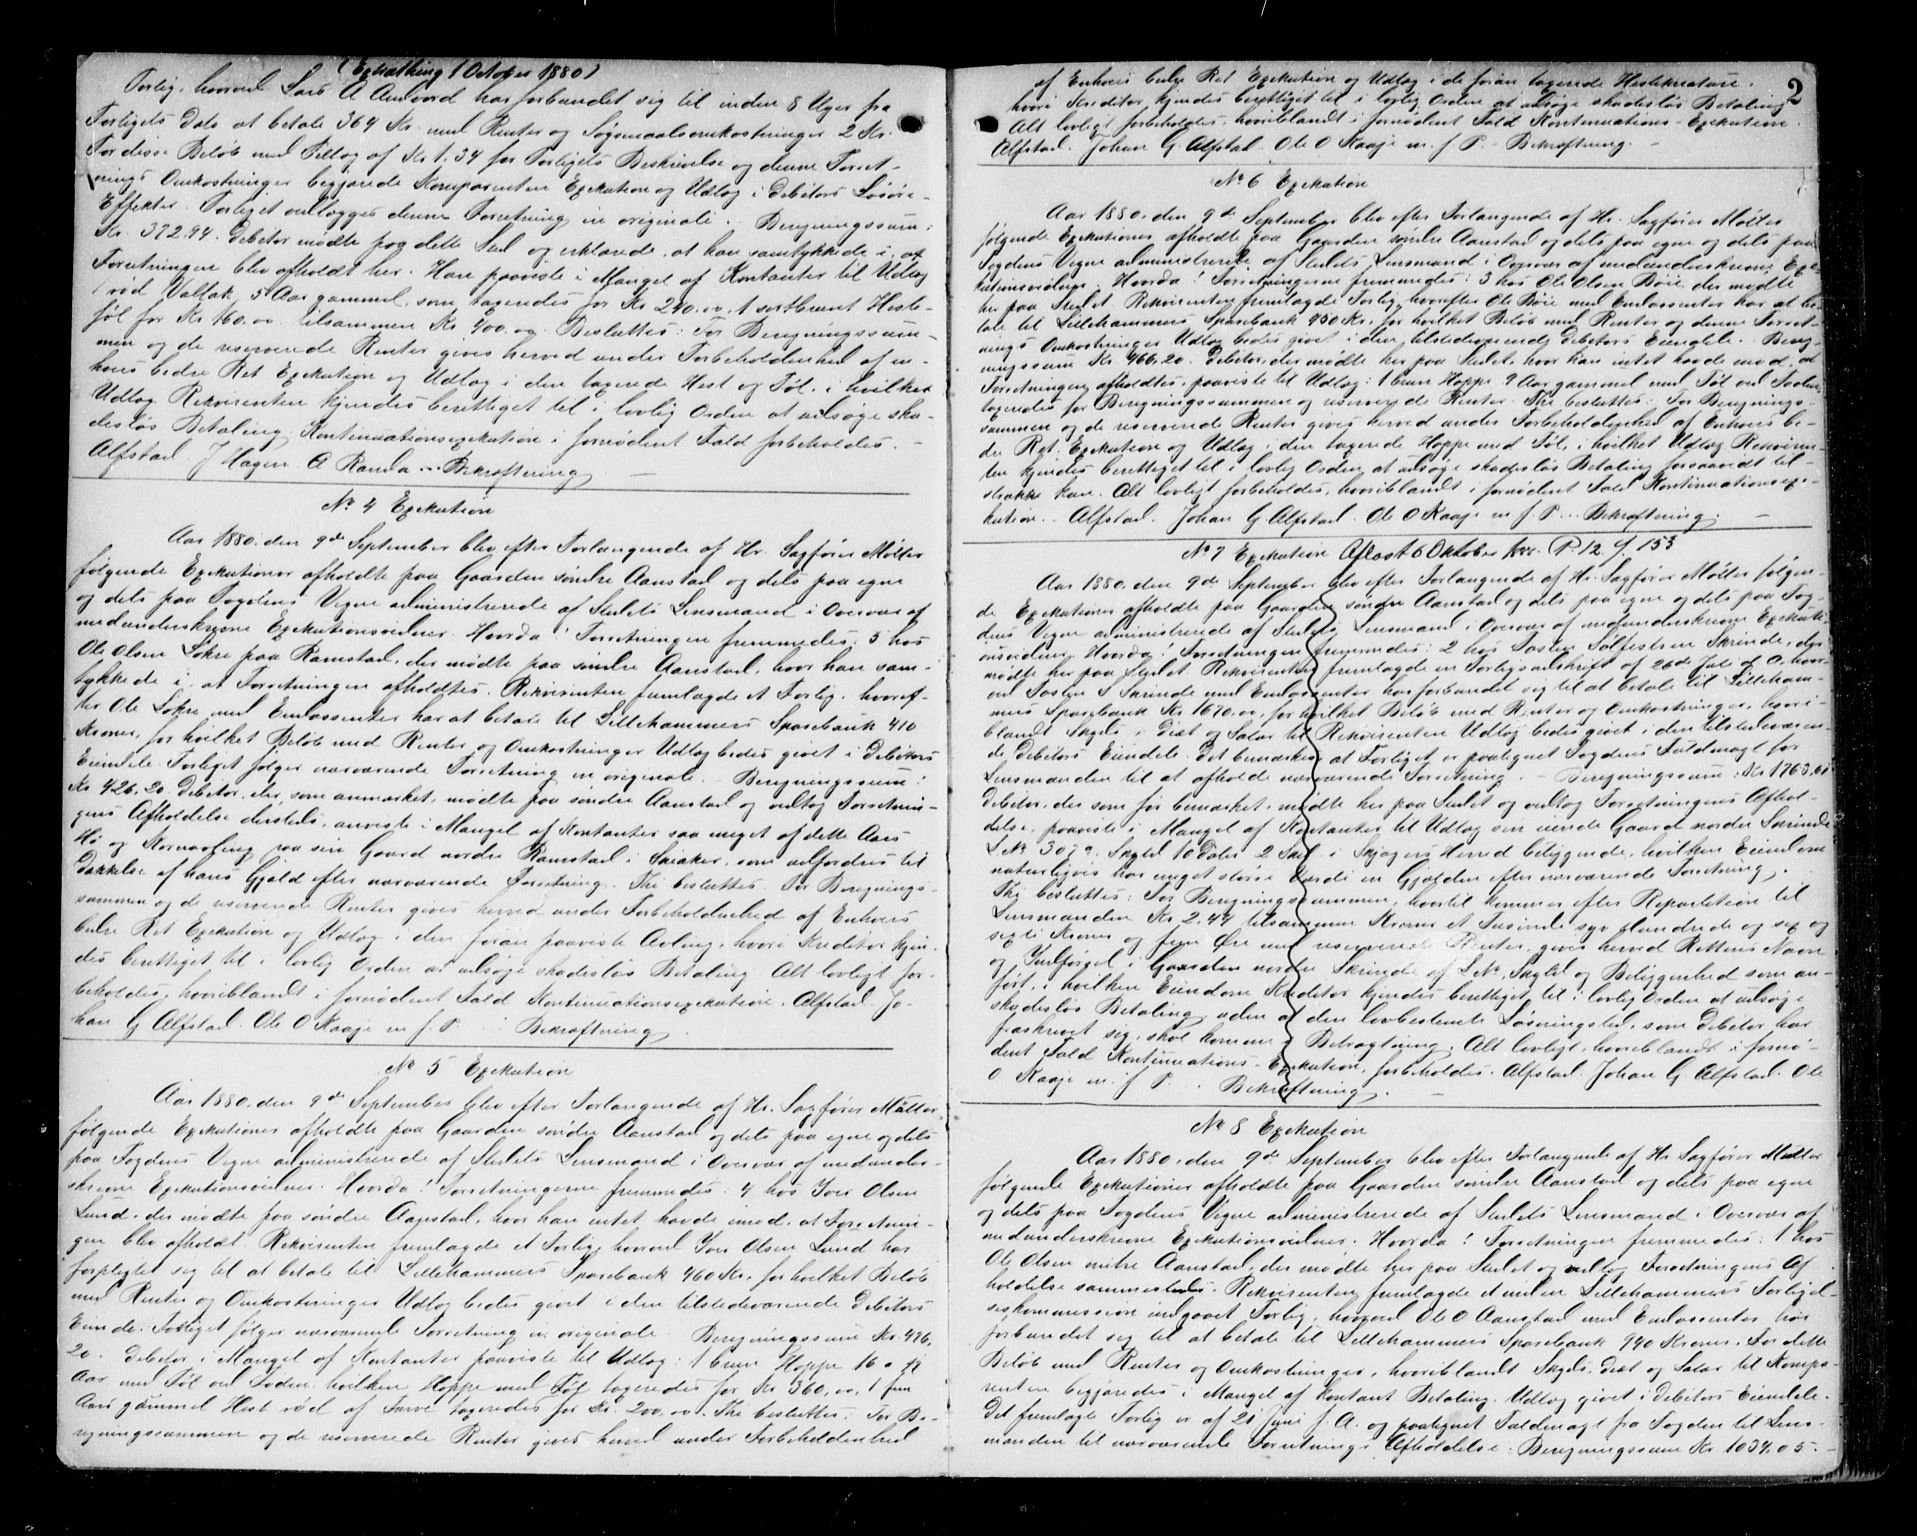 (Extrathing 1 October 1880)
Forlig, hvorved Lars A Aadvord har forbundet sig til inden 8 Uger fra
Forligets Dato at betale 364 Kr. med Renter og Søgsmaalsomkostninger 2 Kr.
For disse Beløb med Tillæg af Kr 1.34 for Forligets Beskrivelse og denne Forret-
nings Omkostninger begjærede Komparenten Exekution og Udlæg i Debitors Løsøre-
Effekter. Forliget vedlægges denne Forretning in originali. Beregningssum:
Kr. 372.94. Debitor mødte paa dette Sted og erklærede, at han samtykkede i, at
Forretningen blev afholdt her. Han paaviste i Mangel af Kontanter til Udlæg
1 rød Vallak, 5 Aar gammel, som tageredes for Kr 240.00, 1 sortbrunt Heste-
føl for Kr 160.00 tilsammen Kr 400.00. Besluttes: For Beregningssum-
men og de reserverede Renter gives herved under Forbeholdenhed af en-
hvers bedre Ret Exekution og Udlæg i den tagerede Hest og Føl, i hvilket
Udlæg Rekvirenten kjendes berettiget til i lovlig Orden at udsøge ska-
desløs Betaling. Kontinuationsexekution i fornødent Fald forbeholdes. -
Alfstad. J Hagen. A Randa -.- Bekræftning
No 4 Exekution
Aar 1880. den 9de September blev efter Forlangende af Hr. Sagfører Møller
følgende Exekutioner afholdte paa Gaarden søndre Aanstad og dels paa egne
og dels paa Fogdens Vegne administrerede af Stedets Lensmand i Overvær af
medunderskrevne Exekutionsvidner. Hvorda! Forretningen fremmedes: 5 hos
Ole Olsen Løkre paa Ramstad, der mødte paa søndre Aanstad, hvor han sam-
tykkede i, at Forretningen afholdtes. Rekvirenten fremlagde et Forlig, hvoref-
ter Ole Løkre med Enlossenter har at betale til Lillehammers Sparebank 410
Kroner, for hvilket Beløb med Renter og Omkostninger Udlæg bedes givet i Debitors
Eiendele. Forliget følger nærværende Forretning in originale. - Beregningssum:
Kr 426.20. Debitor, der, som anmærket, mødte paa søndre Aanstad og vedtog Forretnin-
gens Afholdelse dersteds, anviste i Mangel af Kontanter saa meget af dette Aars
Hø og Kornavling paa sin Gaard nordre Ramstad i Skiaker, som udfordres til
Dækkelse af hans Gjæld efter nærværende Forretning. Thi besluttes. For Beregnings-
summen og de reserverede Renter gives herved under Forbeholdenhed af Enhvers
bedre Ret Exekution og Udlæg i den foran paaviste Avling, hvori Kreditor kjen-
des berettiget til i lovlig Orden at udsøge skadesløs Betaling. Alt lovligt for-
beholdes, hvoriblandt i fornødent Fald Kontinuationsexekution. Alfstad. Jo-
han G Alfstad. Ole O Kaaje m. f. P. Bekræftning
No 5 Exekution
Aar 1880. den 9de September blev efter Forlangende af Hr. Sagfører Møller
følgende Exekutioner afholdte paa Gaarden søndre Aanstad og dels paa egne og dels
paa Fogdens Vegne administrerede af Stedets Lensmand i Overvær af medunder-
skrevne Exekutionsvidner. Hvorda! Forretningerne fremmedes: 4 hos Iver Olsen
Lund, der mødte paa søndre Aanstad, hvor han intet havde imod, at Forretnin-
gen blev afholdt. Rekvirenten fremlagde et Forlig hvorved Iver Olsen Lund har
forpligtet sig til at betale til Lillehammers Sparebank 460 Kr. for hvilket Beløb
med Renter og Omkostninger Udlæg bedes givet i den tilstedeværende Debitors
Eiende. Forliget følger nærværende Forretning in originale. Beregningssum Kr. 476.
20. Debitor i Mangel af Kontanter paaviste til Udlæg: 1 brun Hoppe 16 a
Aar med Føl ved Foden, hvilken Hoppe med Føl tageredes for Kr 360.00, 1 fem
Aar gammel Hest rød af Farve tageredes for Kr. 200.00. Thi besluttes: For Be-
regningssummen og de reserverede Renter gives herved under Forbeholdenhed
2
af Enhvers bedre Ret Exekution og Udlæg i de foran tagerede Hestekreature,
hvori Kreditor kjendes berettiget til i lovlig Orden at udsøge skadesløs Betaling
Alt lovligt forbeholdes, hvoriblandt i fornødent Fald Kontinuations-Exekution.
Alfstad. Johan G. Alfstad. Ole O Kaaje m. f. P. - Bekræftning. -
No 6 Exekution
Aar 1880. den 9de September blev efter Forlangende af Hr. Sagfører Møller
følgende Exekutioner afholdte paa Gaarden søndre Aanstad og dels paa egne og dels paa
Fogdens Vegne administrerede af Stedets Lensmand i Overvær af medunderskrevne Exe-
kutionsvidner. Hvorda! Forretningerne fremmedes: 3 hos Ole Olsen Bøie, der mødte
her paa Stedet. Rekvirenten fremlagde Forlig, hvorefter Ole Bøie med Enlossenter har at be-
tale til Lillehammers Sparebank 450 Kr. for hvilket Beløb med Renter og denne Forret-
nings Omkostninger Udlæg bedes givet i den tilstedeværende Debitors Eiendele. Bereg-
ningssum Kr 466.20. Debitor, der mødte her paa Stedet, hvor han intet havde imod, at
Forretningen afholdtes, paaviste til Udlæg: 1 brun Hoppe 9 Aar gammel med Føl ved Foden,
tageredes for Beregningssummen og reserverede Renter. Thi besluttes: For Beregnings-
summen og de reserverede Renter gives herved under Forbeholdenhed af Enhvers be-
dre Ret Exekution og Udlæg i den tagerede Hoppe med Føl, i hvilket Udlæg Rekviren-
ten kjendes berettiget til i lovlig Orden at udsøge skadesløs Betaling forsaavidt til-
strække kan. Alt lovligt forbeholdes, hvoriblandt i fornødent Fald Kontinuationsexe-
kution. - Alfstad. Johan G Alfstad. Ole O Kaaje m. f. P. - Bekræftning. -
No 7 Exekution Aflæst 6 Oktober P. 12 f. 153
Aar 1880. den 9de September blev efter Forlangende af Hr. Sagfører Møller følgen-
de Exekutioner afholdte paa Gaarden søndre Aanstad og dels paa egne og dels paa Fog-
dens Vegne administrerede af Stedets Lensmand i Overvær af medunderskrevne Exekuti-
onsvidner. Hvorda! Forretningen fremmedes: 2 hos Josten Sølfestsen Skrinde, der
mødte her paa Stedet. Rekvirenten fremlagde en Forligsudskrift af 26de Juli d. A. hvor-
ved Josten S Skrinde med Enlossenter har forbundet sig til at betale til Lilleham-
mers Sparebank Kr. 1670.00, for hvilket Beløb med Renter og Omkostninger, hvori-
blandt Skyds, Diæt og Salær til Rekvirenten Udlæg bedes givet i den tilstedeværen-
de Debitors Eiendele. Det bemærkes, at Forliget er paategnet Fogdens Fuldmagt for
Lensmanden til at afholde nærværende Forretning. - Beregningssum: Kr 1763.61
Debitor, der som før bemærket, mødte her paa Stedet og vedtog Forretningens Afhol-
delse, paaviste i Mangel af Kontanter til Udlæg sin eiende Gaard nordre Skrinde
L.No 30 Skyld 10 Daler 2 Skil. i Skjagers Herred beliggende, hvilken Eiendom
naturligvis har meget større Værdi en Gjælden efter nærværende Forretning.
Thi besluttes: For Beregningssummen, hvortil kommer efter Repartition til
Lensmanden Kr. 2.44 tilsammen Kroner Et Tusinde syv Hundrede og sex og
sexti Kroner og fem Øre med reserverede Renter, gives herved Rettens Navn
og Indførsel i Gaarden nordre Skrinde af L No, Skyld og Beliggenhed som an-
ført, i hvilken Eiendom Kreditor kjendes berettiget til i lovlig Orden at udsøge
skadesløs Betaling, uden at den lovbestemte Løsningstid, som Debitor har
fraskrevet sig, skal komme i Betragtning. Alt lovligt, hvoriblandt i fornø-
dent Fald Kontinuations-Exekution, forbeholdes. Alfstad. Johan G. Alfstad. Ole
O Kaaje m. f. P. Bekræftning. -
No 8 Exekution
Aar 1880. den 9de September blev efter Forlangende af Hr Sagfører Møller
følgende Exekutioner afholdte paa Gaarden søndre Aanstad og dels paa egne
og dels paa Fogdens Vegne administrerede af Stedets Lensmand i Overvær af
medunderskrevne Exekutionsvidner. Hvorda! Forretningen fremmedes: 1 hos
Ole Olsen mitre Aanstad, der mødte her paa Stedet og vedtog Forretningens Af-
holdelse sammesteds. Rekvirenten fremlagde et inden Lillehammers Forligel-
seskommission indgaaet Forlig, hvorved Ole O Aanstad med Enlossenter, har
forbundet sig til at betale til Lillehammers Sparebank 940 Kroner. For dette
Beløb med Renter og Omkostninger, hvoriblandt Skyds, Diæt og Salær til Kompa-
renten begjæredes i Mangel af Kontant Betaling, Udlæg givet i Debitors Eiendele.
Det fremlagte Forlig er af 21 Juni d. A. og paategnet Fuldmagt fra Fogden til Lens-
manden til nærværende Forretnings Afholdelse. Beregningssum Kr. 1034.05. -